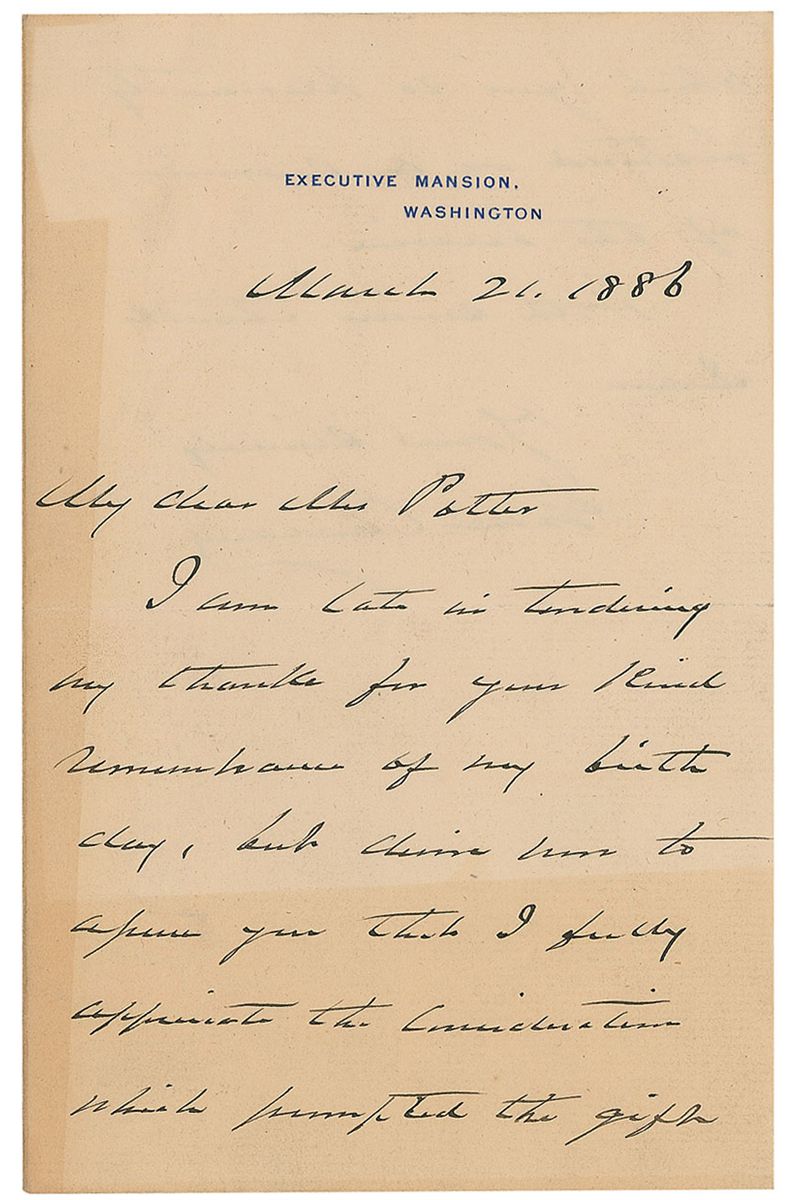 EXECUTIVE MANSION,
WASHINGTON
March 21. 1886
My dear Mrs Potter
I am late in tendering
my thanks for your kind
remembrance of my birth
day, but desire now to
assure you that I fully
appreciate the consideration
which prompted the gift